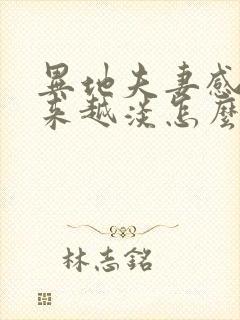 異地夫妻感
來越淡怎麼
林志銘